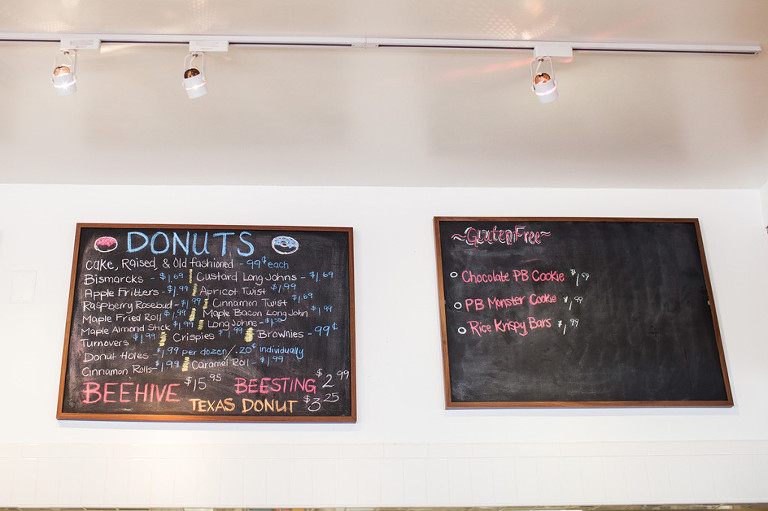 DONUTS
Cake, Raised, & Old fashioned - 99¢ each
Bismarcks - $1.69 Custard Long Johns - $1.69
Apple Fritters - $1.99 Apricot Twist $1.99
Raspberry Rosebud - $1.99 Cinnamon Twist $1.69
Maple Fried Roll $1.99 Maple Bacon Long John $1.99
Maple Almond Stick $1.99 Long Johns -
Turnovers $1.99 Crispies $1.99 Brownies - 99¢
Donut Holes - 1.99 per dozen / .20¢ individually
Cinnamon Rolls - $1.99 Caramel Roll - $1.99
BEEHIVE $15.95 BEESTING $2.99
TEXAS DONUT $3.25
~Gluten Free~
Chocolate PB Cookie $1.99
PB Monster Cookie $1.99
Rice Krispy Bars $1.99